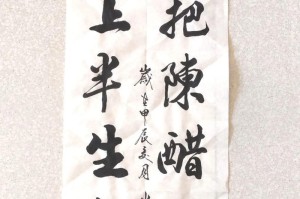 把陳醋
上半生
歲在甲辰冬月